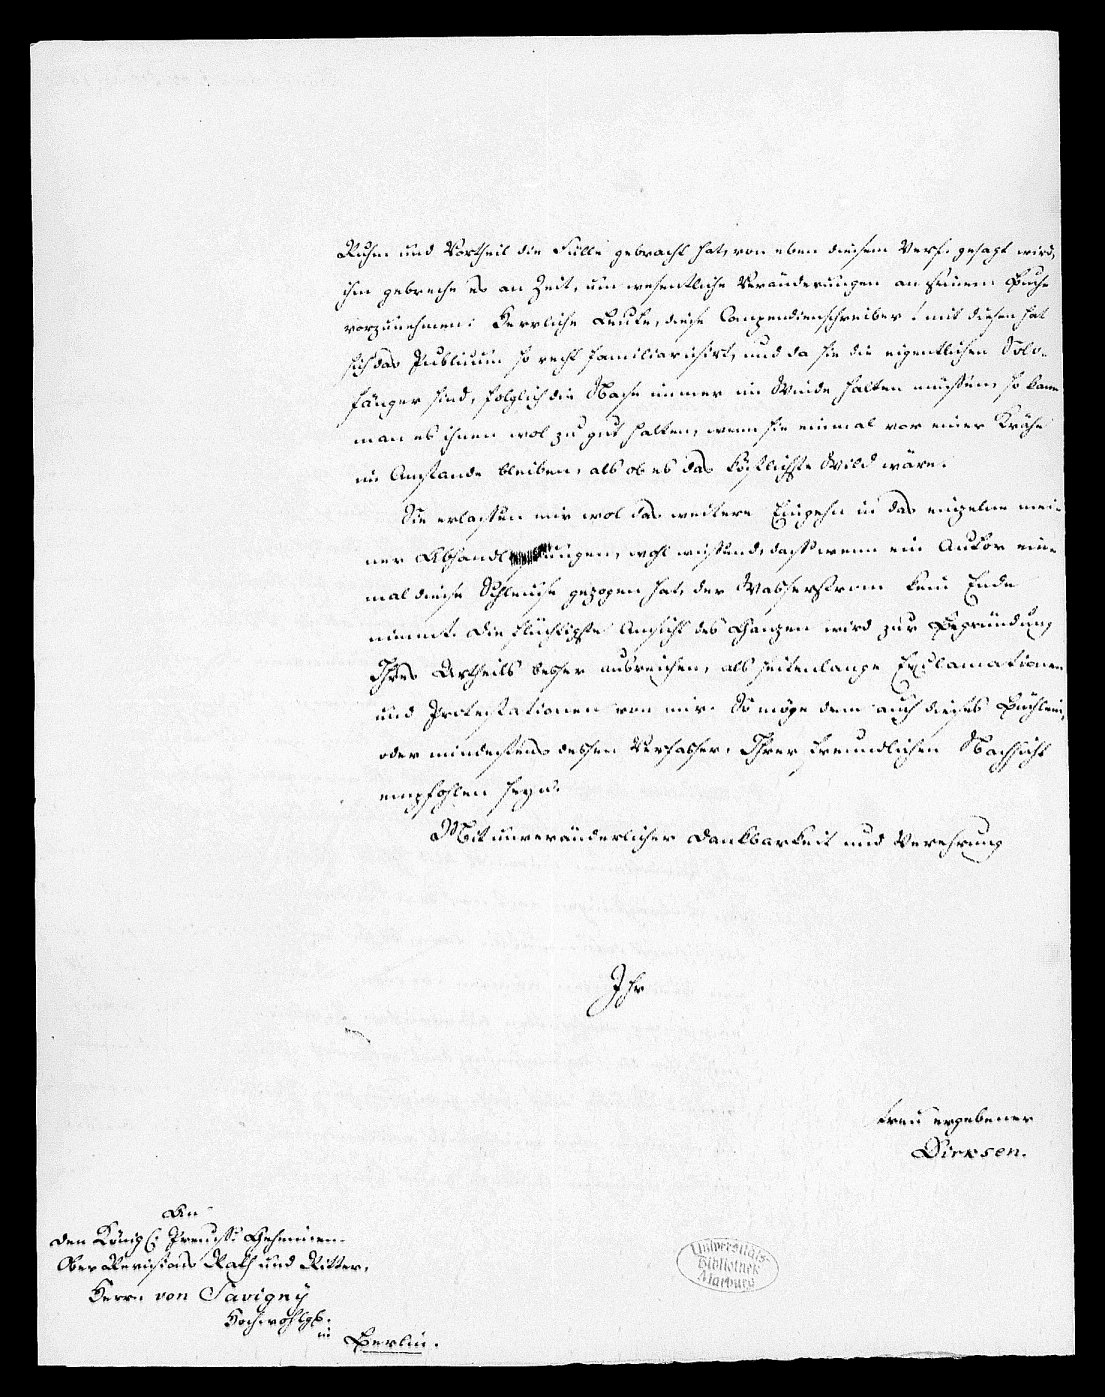 Ruhm und Vortheil die Fülle gebracht hat, von eben diesem Verf. gesagt wird,
ihm gebreche es an Zeit, um wesentliche Veränderungen an seinem Buche
vorzunehmen! Herrliche Leute, diese Compendienschreiber! mit diesen hat
sich das Publicum so recht familiarisirt, und da sie die eigentlichen
fänger sind, folglich die Nase immer im Winde halten müssen, so kann
man es ihnen wol zu gut halten, wenn sie einmal vor einer Krähe
im Anstande bleiben, als ob es das köstlichste Wild wäre.
Sie erlassen mir wol das weitere Eingehn in das einzelne mei-
ner Abhandlungen, wohl wissend, dass wenn ein Autor ein-
mal diese Schleuse gezogen hat, der Wasserstrom kein Ende
nimmt. Die flüchtigste Ansicht des Ganzen wird zur Begründung
Ihres Urtheils besser ausreichen, als seitenlange Exclamationen
und Protestationen von mir. So möge denn auch dieses Büchlein,
oder mindestens dessen Verfasser, Ihrer freundlichen Nachsicht
empfohlen seyn.
Mit unveränderlicher Dankbarkeit und Verehrung
Ihr
treu ergebener
Dirksen.
An
den Königl. Preuss. Geheimen-
Ober Revisions Rath und Ritter,
Herrn von Savigny
Hochwohlgb.
in Berlin.
Universitäts-
Bibliothek
Marburg